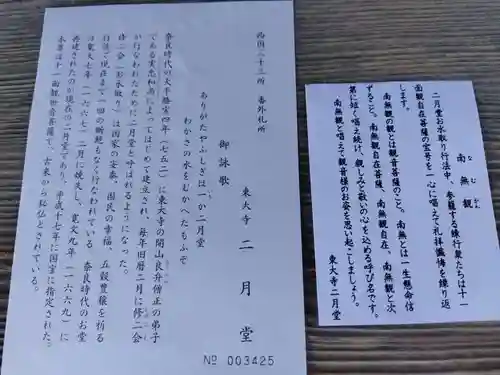 西国三十三所 番外札所
東大寺 二月堂
御詠歌
ありがたやふしぎは一か二月堂
わかさの水をむかへたもふぞ
奈良時代の天平勝宝四年(七五二)に東大寺の開山良弁僧正の弟子
である実忠和尚によってはじめて建立され、毎年旧暦二月に修二会
が行なわれたために二月堂と呼ばれるようになった。
修二会(お水取り)は国家の安泰、国民の幸福、五穀豊穣を祈る
行法で現在まで一回の断絶もなく行なわれている。奈良時代のお堂
は寛文七年(一六六七)二月に焼失し、寛文九年(一六六九)に
再建されたのが現在の二月堂であり、平成十七年に国宝に指定された。
本尊は十一面観世音菩薩で、古来から秘仏とされている。
№ 003425
南無観
なむかん
二月堂お水取り行法中、参籠する練行衆たちは十一
面観自在菩薩の宝号を一心に唱えて礼拝讃悔を繰り返
します。
南無観の観とは観音菩薩のこと。南無とは一生懸命信
ずること。南無観自在菩薩、南無観自在、南無観と次
第に短く唱え続け、親しみと敬いの心を込める呼び名です。
南無観と唱えて観音様のお姿を思い起こしましょう。
東大寺二月堂